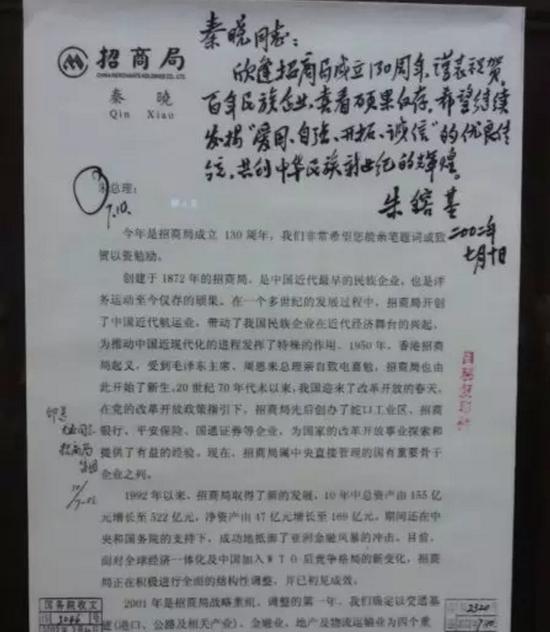 招商局
CHINA MERCHANTS HOLDINGS CO., LTD.
秦 晓
Qin Xiao
秦晓同志：
欣逢招商局成立130周年，谨表祝贺。
百年民族企业，喜看硕果仅存，希望继续
发扬“爱国、自强、开拓、诚信”的优良传
统，共创中华民族新世纪的辉煌。
朱镕基
二〇〇二年
七月十日
朱总理：
7.10.
今年是招商局成立 130 周年，我们非常希望您能亲笔题词或致
贺以资勉励。
创建于 1872 年的招商局，是中国近代最早的民族企业，也是洋
务运动至今仅存的硕果。在一个多世纪的发展过程中，招商局开创
了中国近代航运业，带动了我国民族企业在近代经济舞台的兴起，
为推动中国近现代化的进程发挥了特殊的作用。1950 年，香港招商
局起义，受到毛泽东主席、周恩来总理亲自致电嘉勉，招商局也由
此开始了新生。20 世纪 70 年代末以来，我国迎来了改革开放的春天，
在党的改革开放政策指引下，招商局先后创办了蛇口工业区、招商
银行、平安保险、国通证券等企业，为国家的改革开放事业探索和
提供了有益的经验。现在，招商局属中央直接管理的国有重要骨干
企业之列。
1992 年以来，招商局取得了新的发展，10 年中总资产由 155 亿
元增长至 522 亿元，净资产由 47 亿元增长至 169 亿元。期间还在中
央和国务院的支持下，成功地抵御了亚洲金融风暴的冲击。目前，
面对全球经济一体化及中国加入 WTO 后竞争格局的新变化，招商
局正在积极进行全面的结构性调整，并已初见成效。
2001 年是招商局战略重组、调整的第一年，我们确定以交通基
建（港口、公路及相关产业）、金融业、地产及物流运输业为四个重
招商局
国务院收文
2320